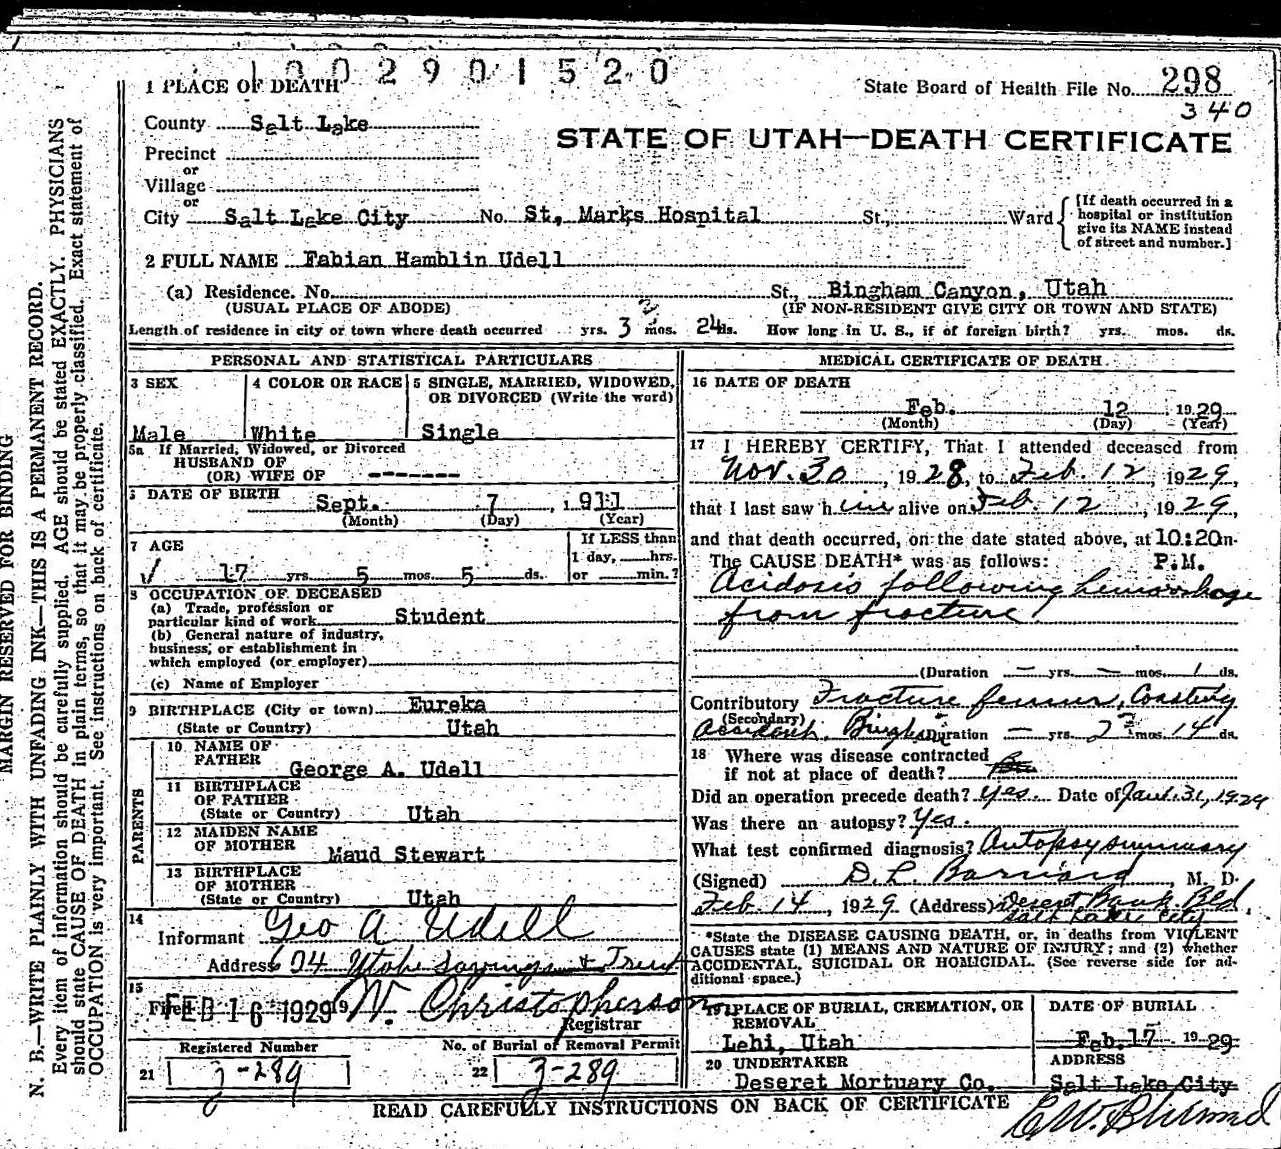 1002901520
1 PLACE OF DEATH
State Board of Health File No. 298
340
County Salt Lake
STATE OF UTAH—DEATH CERTIFICATE
Precinct
or
Village
or
City Salt Lake City No. St. Marks Hospital St., Ward
[If death occurred in a
hospital or institution
give its NAME instead
of street and number.]
2 FULL NAME Fabian Hamblin Udell
(a) Residence. No. St., Bingham Canyon, Utah
(USUAL PLACE OF ABODE) (IF NON-RESIDENT GIVE CITY OR TOWN AND STATE)
Length of residence in city or town where death occurred yrs. 3 mos. 24 ds. How long in U. S., if of foreign birth? yrs. mos. ds.
PERSONAL AND STATISTICAL PARTICULARS
3 SEX
Male
4 COLOR OR RACE
White
5 SINGLE, MARRIED, WIDOWED,
OR DIVORCED (Write the word)
Single
5a If Married, Widowed, or Divorced
HUSBAND OF
(OR) WIFE OF -------
6 DATE OF BIRTH
Sept. 7, 1911
(Month) (Day) (Year)
7 AGE
17 yrs. 5 mos. 5 ds.
If LESS than
1 day, hrs.
or min.?
8 OCCUPATION OF DECEASED
(a) Trade, profession or
particular kind of work Student
(b) General nature of industry,
business, or establishment in
which employed (or employer)
(c) Name of Employer
9 BIRTHPLACE (City or town) Eureka
(State or Country) Utah
PARENTS
10 NAME OF
FATHER
George A. Udell
11 BIRTHPLACE
OF FATHER
(State or Country) Utah
12 MAIDEN NAME
OF MOTHER
Maud Stewart
13 BIRTHPLACE
OF MOTHER
(State or Country) Utah
14
Informant Geo A Udell
Address 604 Utah Savings & Trust
15
Filed FEB 16 1929 19 W. Christopherson
Registrar
Registered Number
21 2-289
No. of Burial of Removal Permit
22 3-289
MEDICAL CERTIFICATE OF DEATH
16 DATE OF DEATH
Feb. 12 1929
(Month) (Day) (Year)
17 I HEREBY CERTIFY, That I attended deceased from
Nov. 30, 1928, to Feb. 12, 1929,
that I last saw him alive on Feb. 12, 1929,
and that death occurred, on the date stated above, at 10:20m.
The CAUSE DEATH* was as follows: P.M.
Acidosis following hemorrhage
from fracture
(Duration — yrs. — mos. 1 ds.
Contributory Fracture femur, Coasting
(Secondary)
Accident, Bingham Duration — yrs. 2 mos. 14 ds.
18 Where was disease contracted
if not at place of death?
Did an operation precede death? Yes. Date of Jan. 31, 1929
Was there an autopsy? Yes.
What test confirmed diagnosis? Autopsy summary
(Signed) D. L. Barnard, M. D.
Feb. 14, 1929 (Address) Deseret Bank Bld.
Salt Lake City
*State the DISEASE CAUSING DEATH, or, in deaths from VIOLENT
CAUSES state (1) MEANS AND NATURE OF INJURY; and (2) whether
ACCIDENTAL, SUICIDAL OR HOMICIDAL. (See reverse side for ad-
ditional space.)
19 PLACE OF BURIAL, CREMATION, OR
REMOVAL
Lehi, Utah
DATE OF BURIAL
Feb. 17 1929
20 UNDERTAKER
Deseret Mortuary Co.
ADDRESS
Salt Lake City
READ CAREFULLY INSTRUCTIONS ON BACK OF CERTIFICATE
MARGIN RESERVED FOR BINDING
N. B.—WRITE PLAINLY WITH UNFADING INK—THIS IS A PERMANENT RECORD.
Every item of information should be carefully supplied. AGE should be stated EXACTLY. PHYSICIANS
should state CAUSE OF DEATH in plain terms, so that it may be properly classified. Exact statement of
OCCUPATION is very important. See instructions on back of certificate.